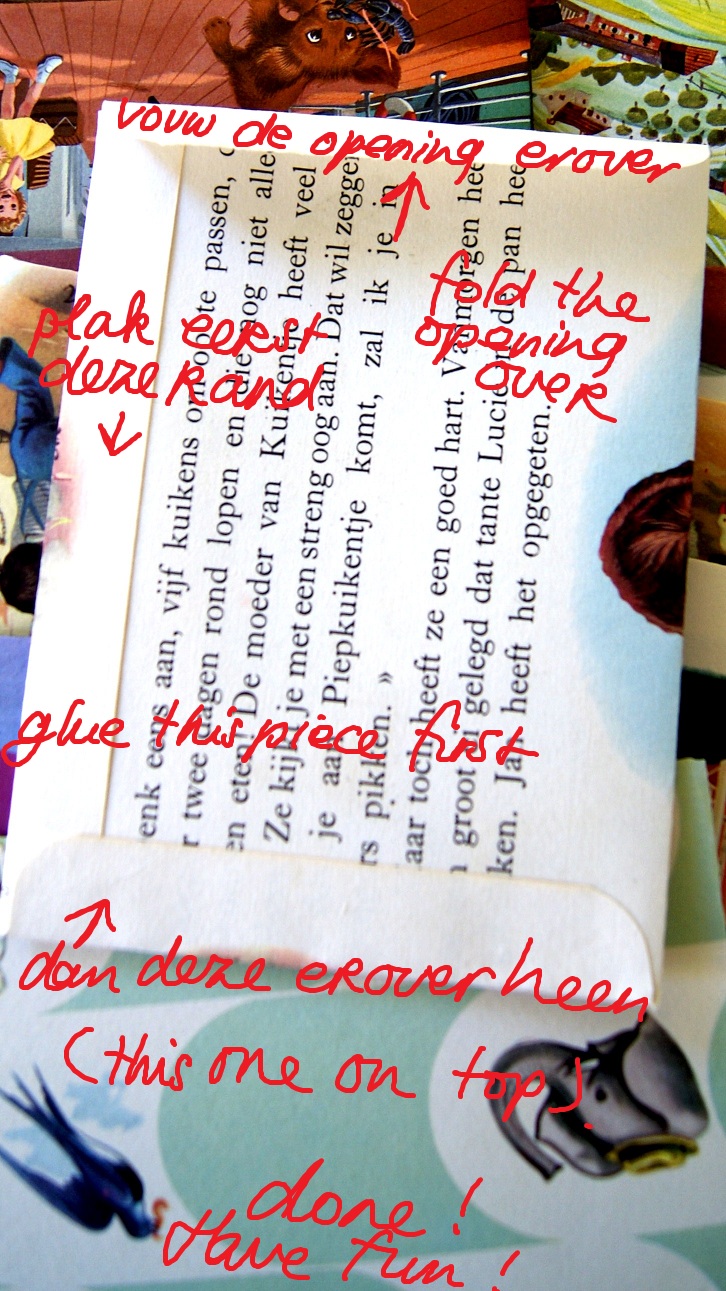 vouw de opening erover
fold the
opening
over
plak eerst
deze rand
glue this piece first
dan deze erover heen
(this one on top).
done!
Have fun!
enk eens aan, vijf kuikens om op te passen,
r twee dagen rond lopen en die nog niet alle
en eten! De moeder van Kuikentje heeft veel
Ze kijkt je met een streng oog aan. Dat wil zegge
je aan Piepkuikentje komt, zal ik je in
rs pikken. »
aar toch heeft ze een goed hart. Vanmorgen hee
groot ei gelegd dat tante Lucie in de pan hee
ken. Jan heeft het opgegeten.